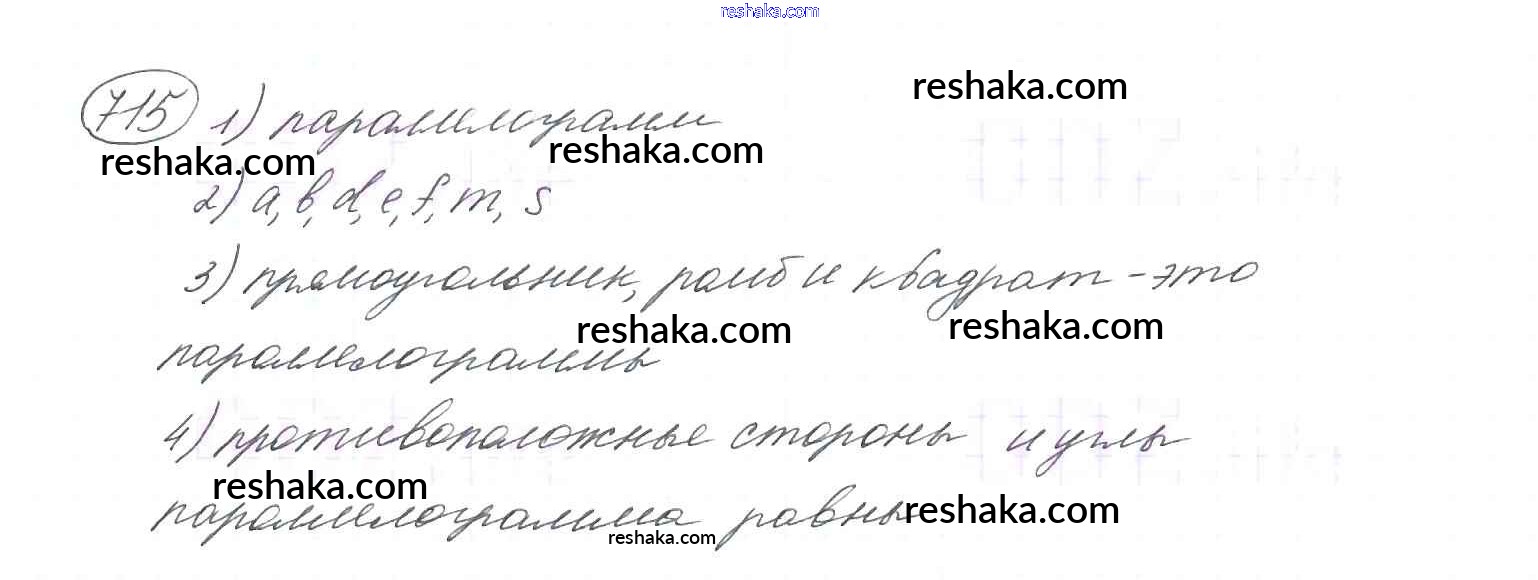 reshaka.com
715 1) параллелограмм reshaka.com
reshaka.com reshaka.com
2) a, b, d, e, f, m, s
3) прямоугольник, ромб и квадрат - это
reshaka.com reshaka.com
параллелограммы
4) противоположные стороны и углы
reshaka.com reshaka.com
параллелограмма равны
reshaka.com